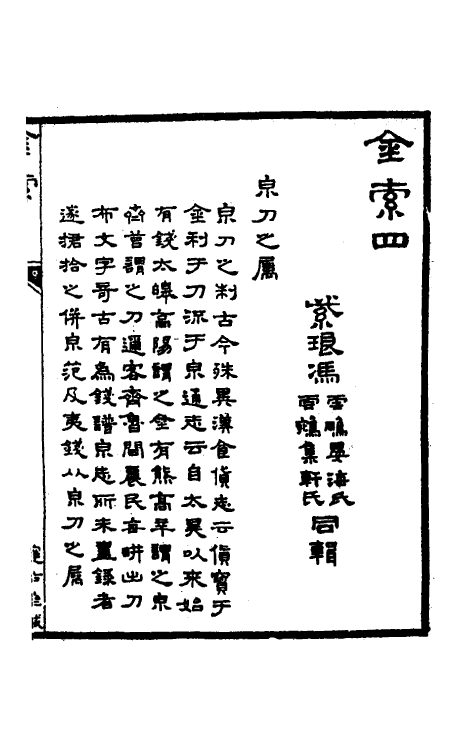 金索四
紫琅馮 雲鵬晏海氏 雲鵷集軒氏 同輯
泉刀之屬
泉刀之制古今殊異漢食貨志云貨寶于
金利于刀流于泉通志云自太昊以來始
有錢太皡高陽謂之金有熊高辛謂之泉
齊莒謂之刀邇客齊魯間農民每耕出刀
布文字奇古有為錢譜泉志所未盡錄者
遂捃拾之併泉范及夷錢以泉刀之屬
金索